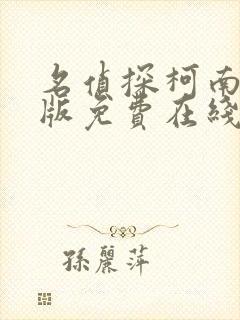 名侦探柯南
版免費在綫
孫麗萍